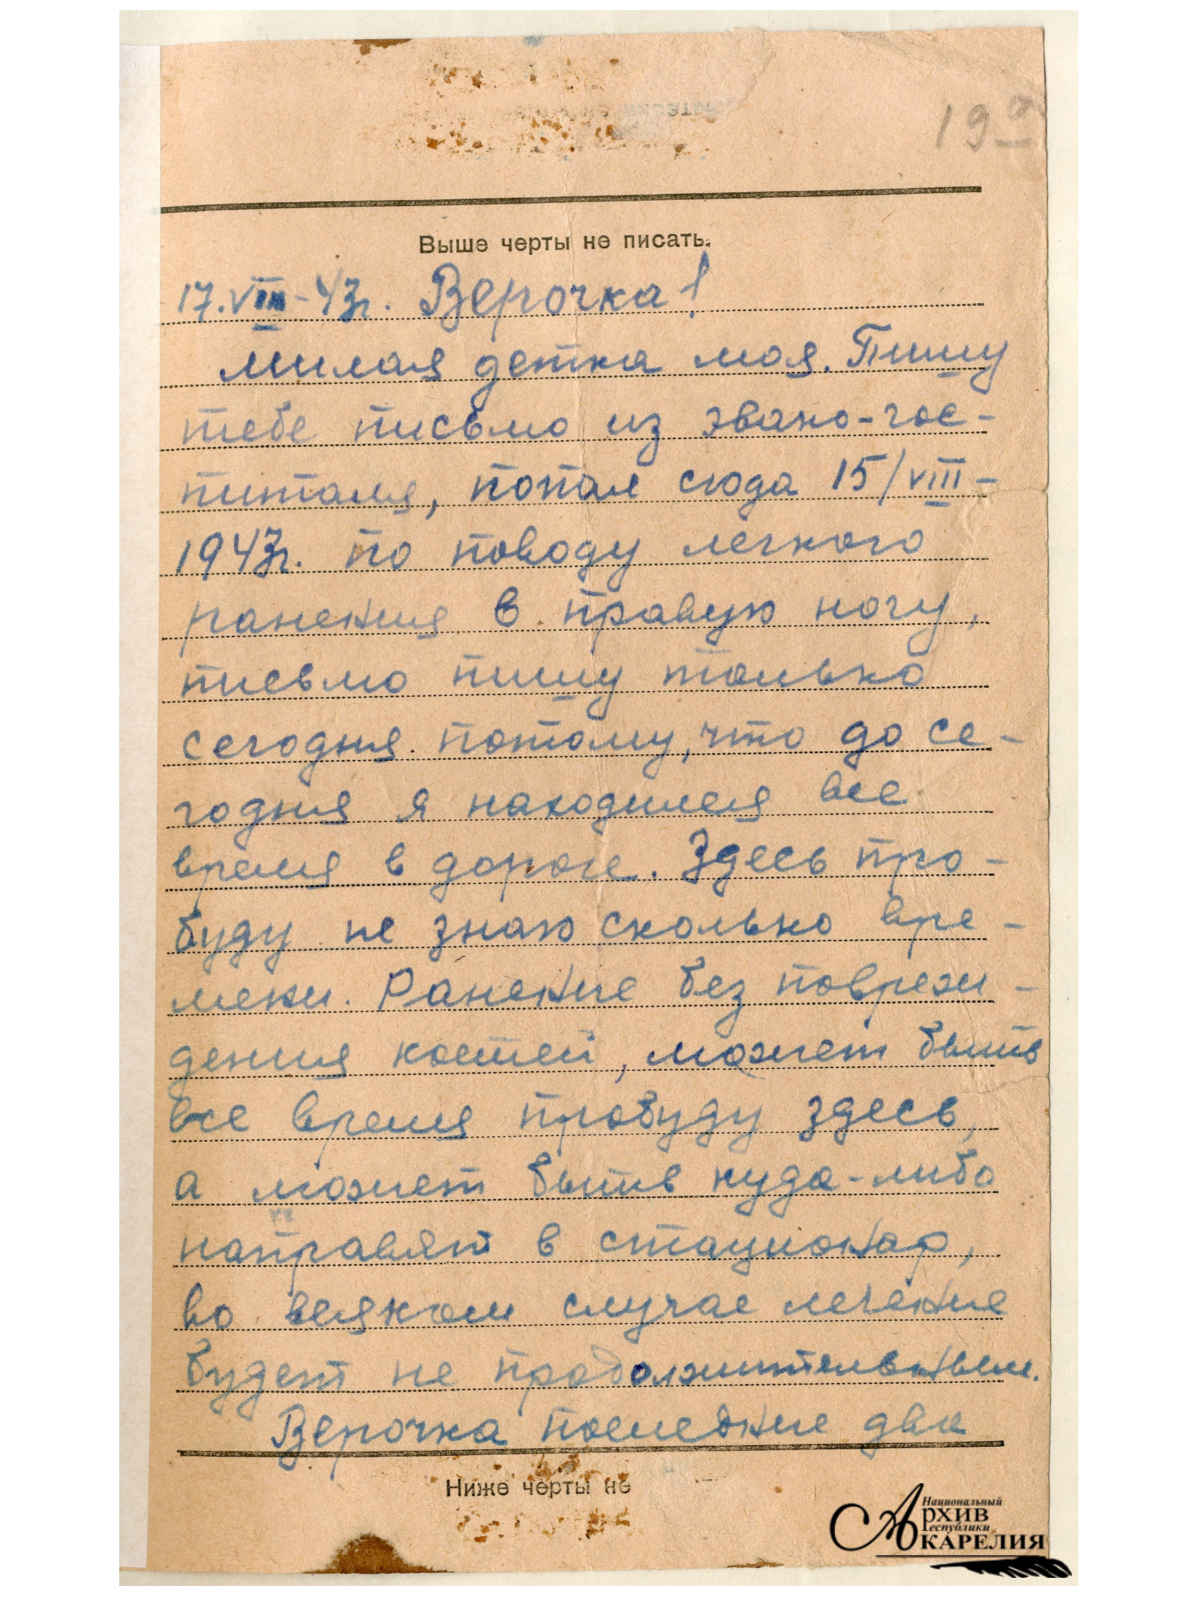 19
Выше черты не писать.
17.VIII-43г. Верочка!
милая детка моя. Пишу
тебе письмо из эвако-гос-
питаля, попал сюда 15/VIII-
1943г. по поводу легкого
ранения в правую ногу,
письмо пишу только
сегодня потому, что до се-
годня я находился все
время в дороге. Здесь про-
буду не знаю сколько вре-
мени. Ранение без повреж-
дения костей, может быть
все время пробуду здесь,
а может быть куда-либо
направят в стационар,
во всяком случае лечение
будет не продолжительным.
Верочка последние два
Ниже черты не
Национальный
Архив
Республики
Карелия